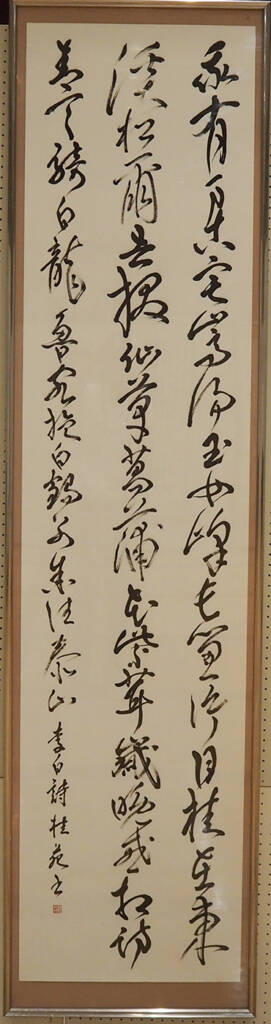 我有万古宅嵩陽玉女峰長留一片月挂在東
溪松爾去掇仙草菖蒲花紫茸歲晚或相訪
青天騎白龍魯客抱白鶴別余往泰山 李白詩 桂苑書